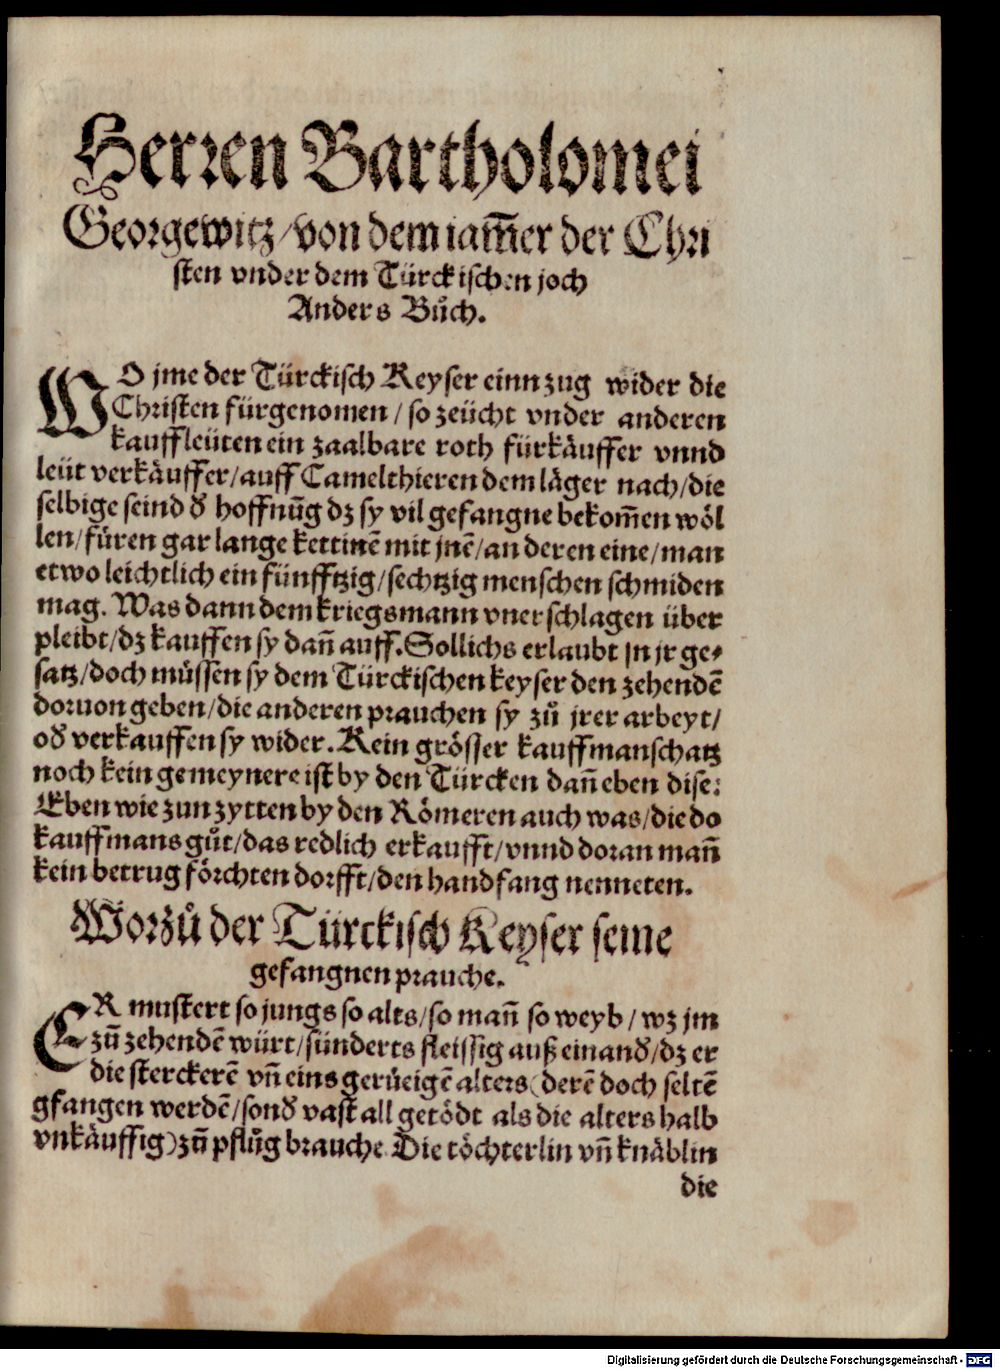 Herren Bartholomei
Georgewitz/von dem iam̄er der Chri
sten vnder dem Türckischen joch
Anders Bůch.
WO jme der Türckisch Keyser einn zug wider die
Christen fürgenomen / so zeücht vnder anderen
kauffleüten ein zaalbare roth fürkäuffer vnnd
leüt verkäuffer/auff Camelthieren dem läger nach/die
selbige seind d̄ hoffnūg dz sy vil gefangne bekom̄en wöl
len/füren gar lange kettinē mit jnē/an deren eine/man
etwo leichtlich ein fünfftzig/sechtzig menschen schmiden
mag. Was dann dem kriegsmann vnerschlagen über
pleibt/dz kauffen sy dan̄ auff. Sollichs erlaubt jn jr ge⸗
satz/doch müssen sy dem Türckischen keyser den zehendē
doruon geben/die anderen prauchen sy zů jrer arbeyt/
od̄ verkauffen sy wider. Kein grösser kauffmanschatz
noch kein gemeynere ist by den Türcken dan̄ eben dise:
Eben wie zun zytten by den Römeren auch was/die do
kauffmans gůt/das redlich erkaufft/vnnd doran man̄
kein betrug förchten dorfft/den handfang nenneten.
Worzů der Türckisch Keyser seine
gefangnen prauche.
ER mustert so jungs so alts/so man̄ so weyb / wz jm
zū zehendē würt/sünderts fleissig auß einand̄/dz er
die sterckerē vn̄ eins gerüeigē alters (derē doch seltē
gfangen werdē/sond̄ vast all getödt als die alters halb
vnkäuffig) zū pflůg brauche. Die töchterlin vn̄ knäblin
die
Digitalisierung gefördert durch die Deutsche Forschungsgemeinschaft - DFG